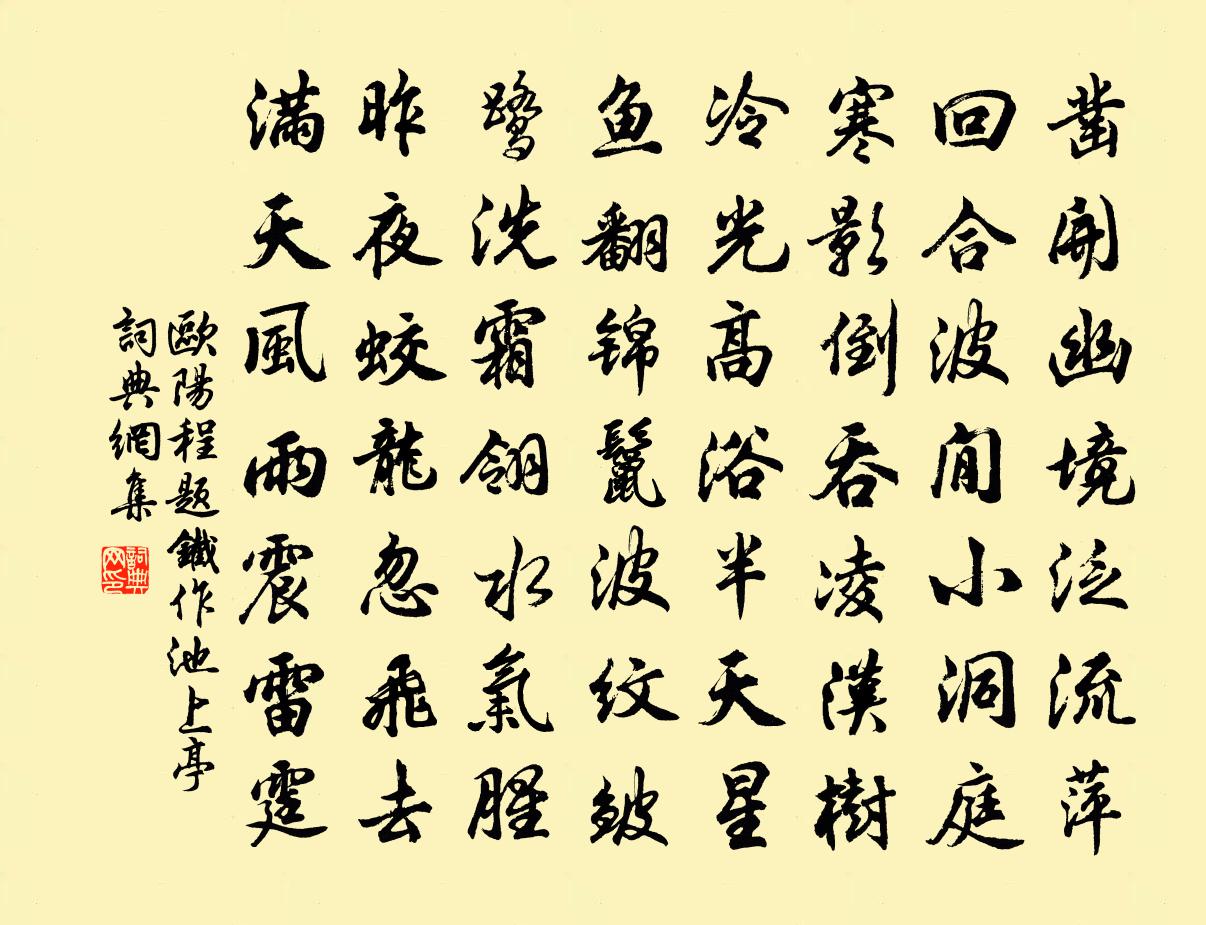 凿開幽境泛流萍
回合波間小洞庭
寒影倒吞凌漢樹
冷光高浴半天星
鱼翻锦鬣波纹皴
鹭洗霜翎水氣腥
昨夜蛟龍忽飛去
满天風雨震雷霆
歐陽程题鐵作池上亭
詞典網集
詞典网印